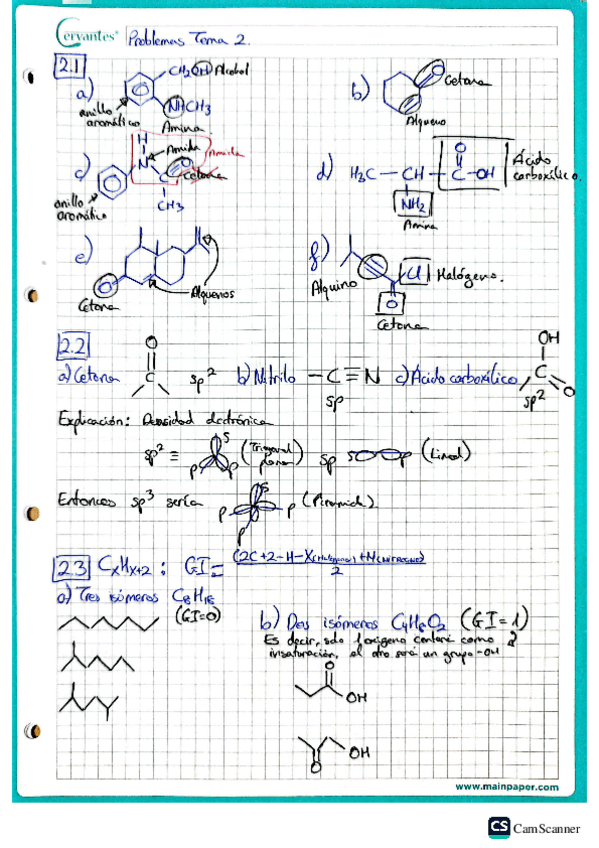 Cervantes Problemas Tema 2.
2.1
a) CH2OH Alcohol
NHCH3
anillo aromático
Amina
b) Cetona
Alqueno
c) H
N Amida Amida
C O Cetona
CH3
anillo aromático
d) H3C - CH - C - OH Ácido carboxílico.
O
NH2
Amina
e) O
Cetona
Alquenos
f) Cl Halógeno.
Alquino
O
Cetona
2.2
a) Cetona O C sp2 b) Nitrilo -C≡N sp c) Ácido carboxílico OH C O sp2
Explicación: Densidad electrónica
sp2 ≡ s p p (Trigonal plana) sp s p (Lineal)
Entonces sp3 sería s p p p (Piramide).
2.3 CxHx+2 : GI = (2C+2-H-X(Halógeno)+N(NITRÓGENO)) / 2
a) Tres isómeros C8H18
(GI=0)
b) Dos isómeros C4H8O2 (GI=1)
Es decir, solo 1 oxígeno contará como
insaturación, el otro será un grupo -OH
O
OH
OH
O
www.mainpaper.com
CS CamScanner